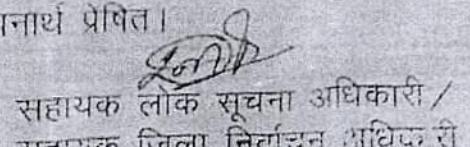 प्रेषित।
सहायक लोक सूचना अधिकारी /
सहायक जिला निर्वाचन अधिकारी